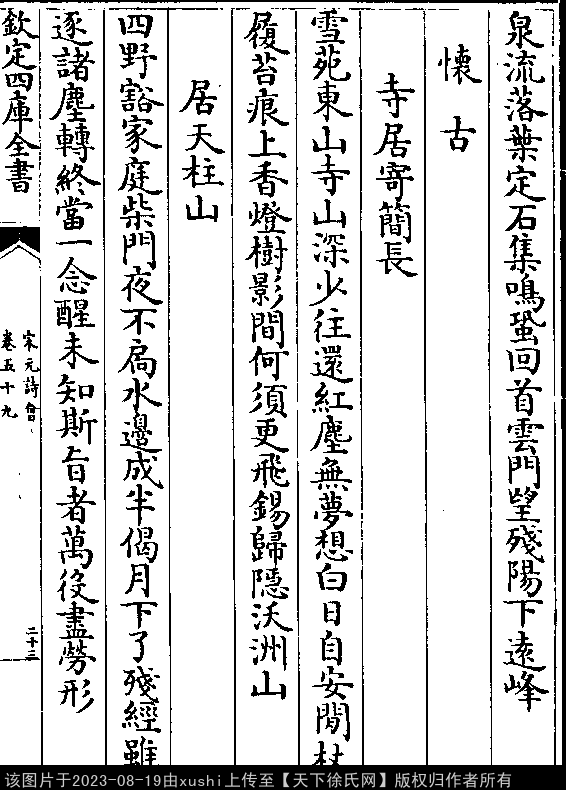 泉流落葉定石集鳴蛩回首雲門望殘陽下遠峰
懷古
寺居寄簡長
雪苑東山寺山深少往還紅塵無夢想白日自安閒杖
履苔痕上香燈樹影間何須更飛錫歸隱沃洲山
居天柱山
四野豁家庭柴門夜不扃水邊成半偈月下了殘經雖
逐諸塵轉終當一念醒未知斯旨者萬役盡勞形
欽定四庫全書
宋元詩會
卷五十九
二十三
该图片于2023-08-19由xushi上传至【天下徐氏网】版权归作者所有